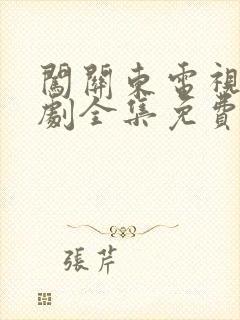 闖關東電視
劇全集免費
張芹